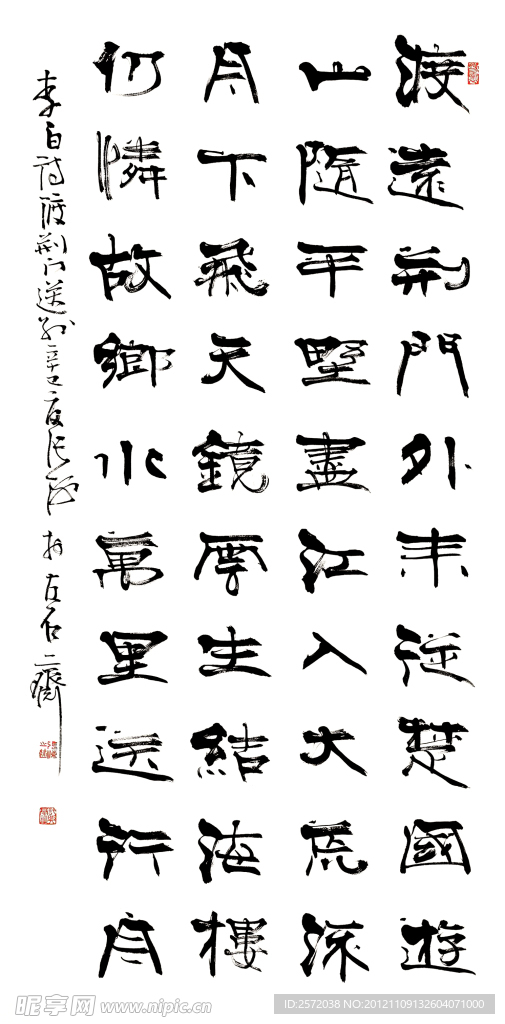 渡遠荊門外来從楚國遊
山隨平野盡江入大荒流
月下飛天鏡雲生結海樓
仍憐故鄉水萬里送行舟
李白詩渡荊門送別辛巳 於左右二齋
昵享网 www.nipic.cn
ID:2572038 NO:20121109132604071000